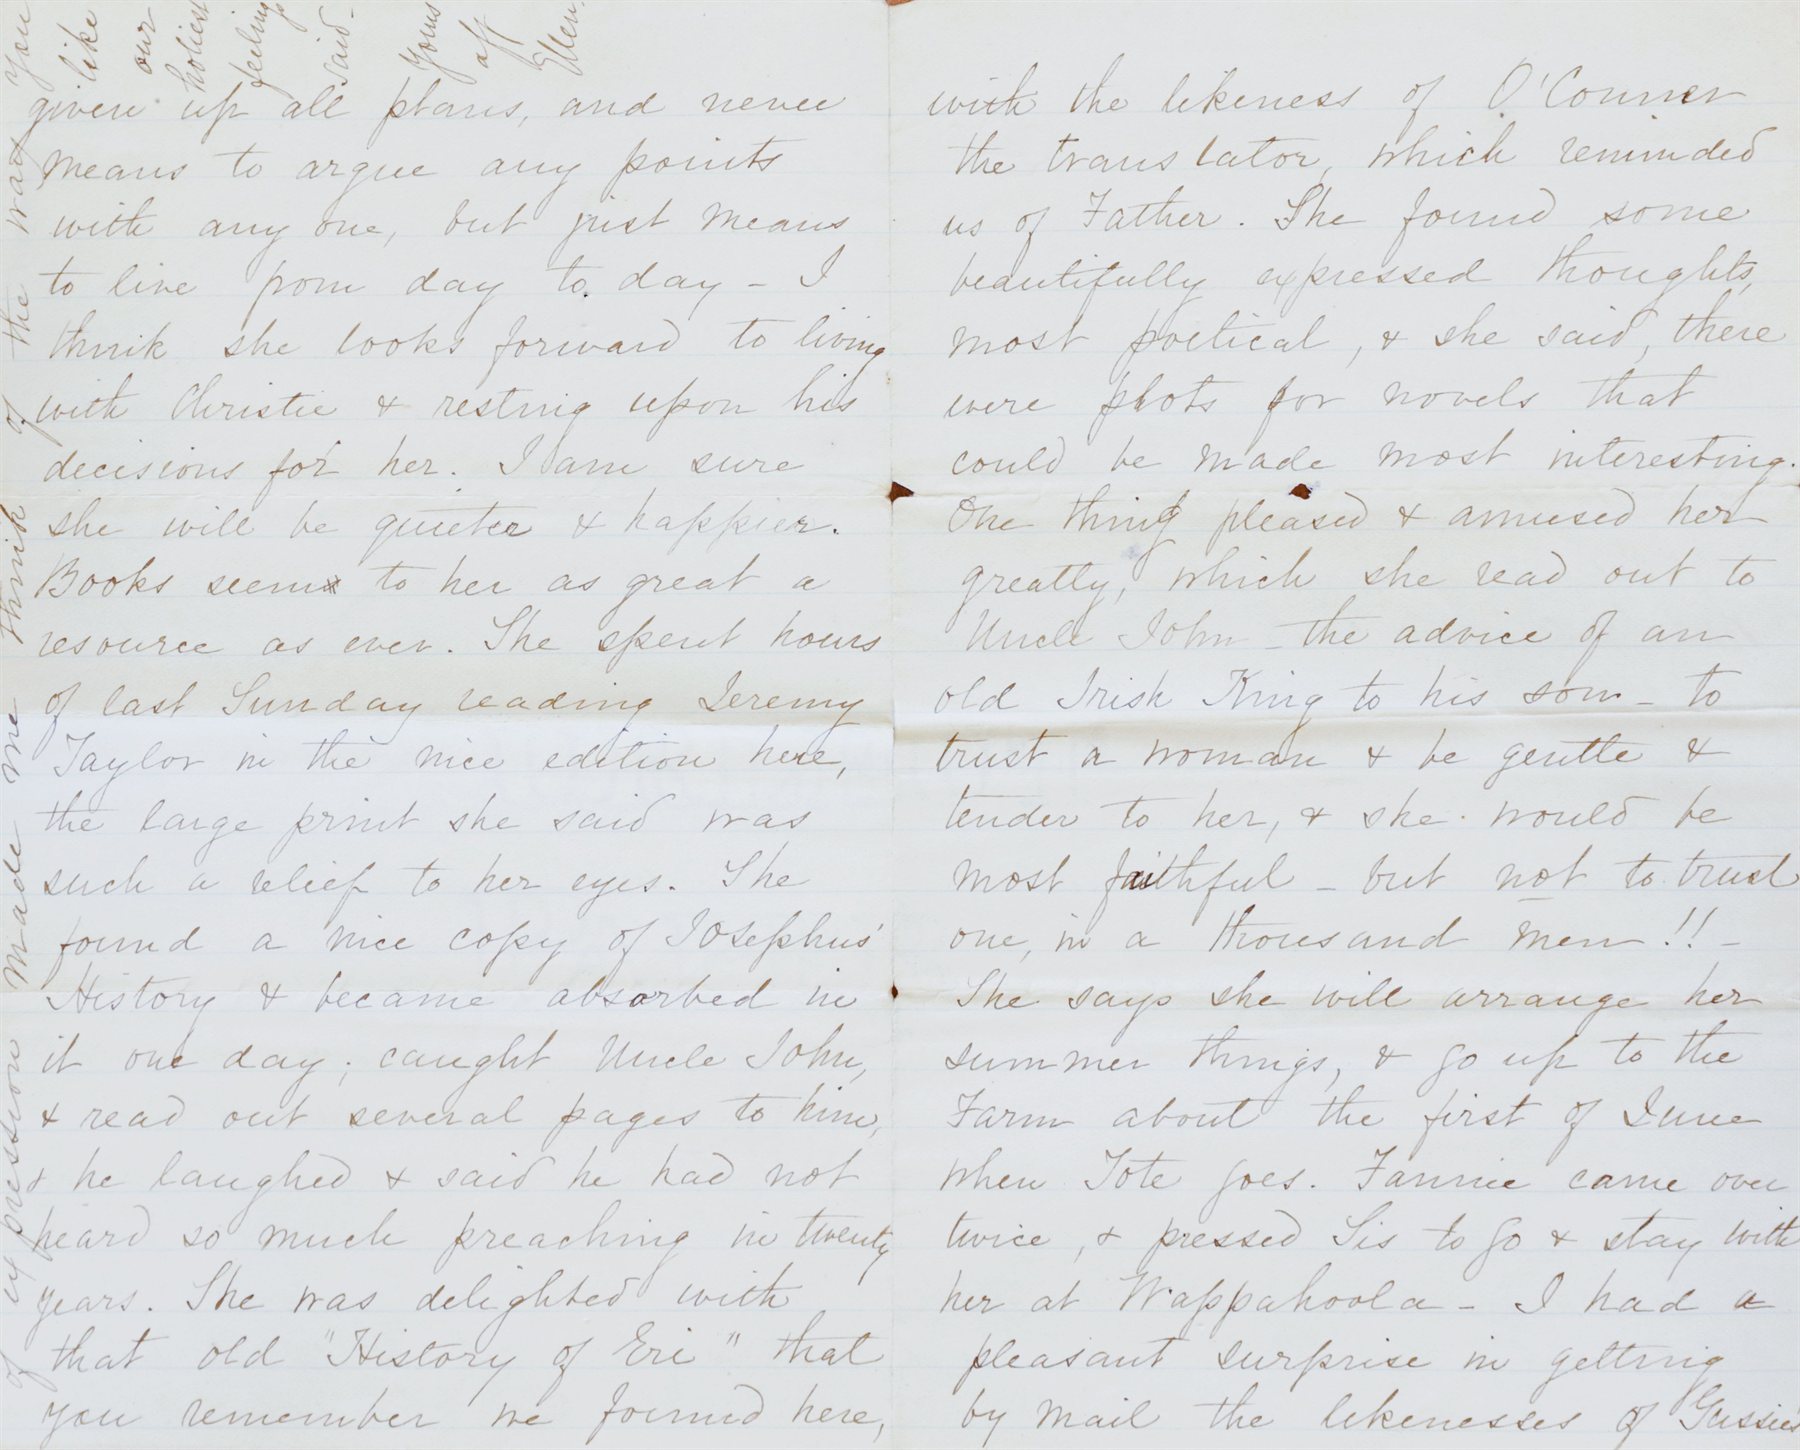 given up all plans, and never
means to argue any points
with any one, but just means
to live from day to day - I
think she looks forward to living
with Christie & resting upon his
decisions for her. I am sure
she will be quieter & happier.
Books seem to her as great a
resource as ever. She spent hours
of last Sunday reading Jeremy
Taylor in the nice edition here,
the large print she said was
such a relief to her eyes. She
found a nice copy of Josephus'
History & became absorbed in
it one day; caught Uncle John,
& read out several pages to him,
& he laughed & said he had not
heard so much preaching in twenty
years. She was delighted with
that old "History of Eri" that
you remember we found here,
with the likeness of O'Conner
the translator, which reminded
us of Father. She found some
beautifully expressed thoughts,
most poetical, & she said, there
were plots for novels that
could be made most interesting.
One thing pleased & amused her
greatly, which she read out to
Uncle John - the advice of an
old Irish King to his son - to
trust a woman & be gentle &
tender to her, & she would be
most faithful - but not to trust
one, in a thousand men!! -
She says she will arrange her
summer things, & go up to the
Farm about the first of June
when Tote goes. Fannie came over
twice, & pressed Sis to go & stay with
her at Wappahoola - I had a
pleasant surprise in getting
by mail the likenesses of Gussie's
of expression made me think of the way you
like
our
holiest
feeling
said -
Yours
aff
Ellen.